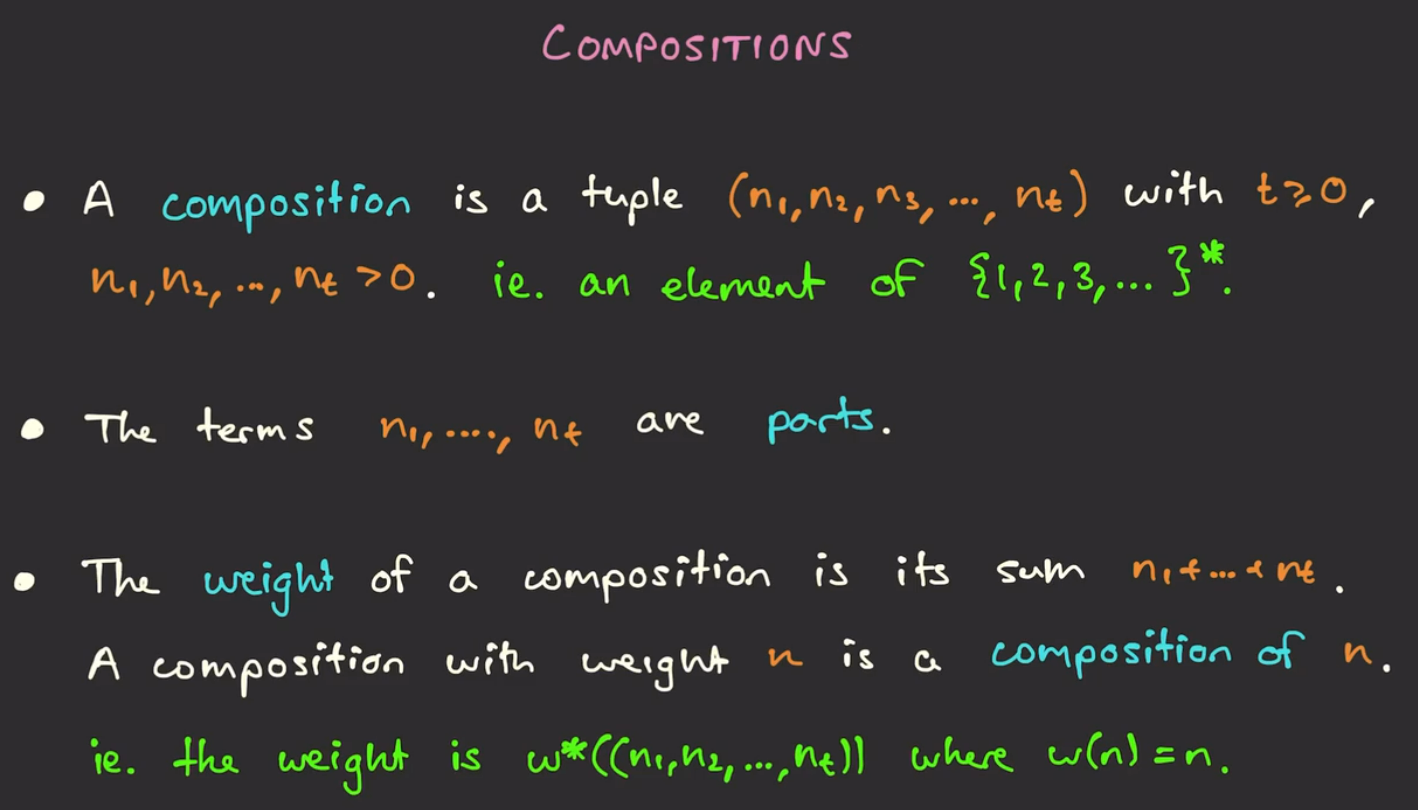 COMPOSITIONS
• A composition is a tuple (n₁, n₂, n₃, ..., nₜ) with t ≥ 0,
n₁, n₂, ..., nₜ > 0. ie. an element of {1, 2, 3, ... }*.
• The terms n₁, ...., nₜ are parts.
• The weight of a composition is its sum n₁ + ... + nₜ.
A composition with weight n is a composition of n.
ie. the weight is w*((n₁, n₂, ..., nₜ)) where w(n) = n.